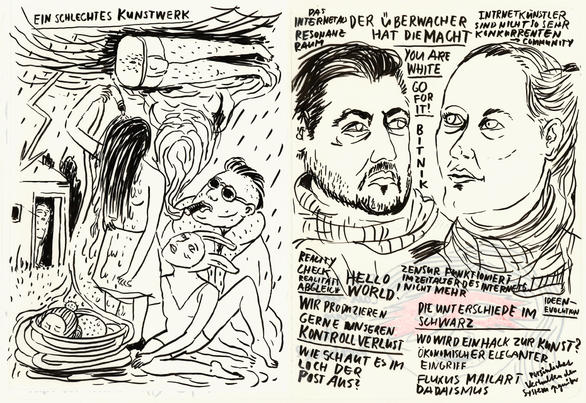 EIN SCHLECHTES KUNSTWERK
DAS
INTERNET ALS
RESONANZ
RAUM
DER ÜBERWACHER
HAT DIE MACHT
INTRNETKÜNSTLER
SIND NICHT SO SEHR
KONKURRENTEN
COMMUNITY
YOU ARE
WHITE
GO
FOR
IT!
BITNIK
REALITY
CHECK
REALITÄTS
ABGLEICH
HELLO
WORLD!
ZENSUR FUNKTIONIERT
IM ZEITALTER DES INTERNETS
NICHT MEHR
IDEEN-
EVOLUTION
WIR PRODUZIEREN
GERNE UNSEREN
KONTROLLVERLUST
WIE SCHAUT ES IM
LOCH DER
POST AUS?
DIE UNTERSCHIEDE IM
SCHWARZ
WO WIRD EIN HACK ZUR KUNST?
ÖKONOMISCHER ELEGANTER
EINGRIFF
FLUXUS MAILART
DADAISMUS
persönliches
Verhalten dem
System gegenüber